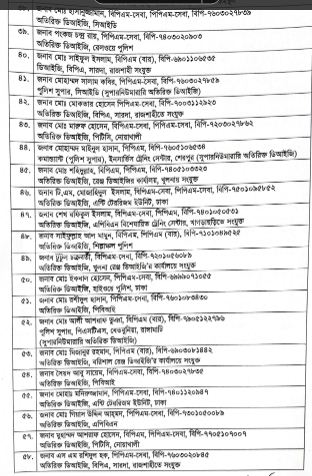 ৩৮. জনাব মোঃ হাসানুজ্জামান, বিপিএম-সেবা, বিপি-৭৬০৩০২৭৮৩৯
অতিরিক্ত ডিআইজি, সিআইডি
৩৯. জনাব পংকজ চন্দ্র রায়, পিপিএম-সেবা, বিপি-৭৪০৩০২০৯০৩
অতিরিক্ত ডিআইজি, রেলওয়ে পুলিশ
৪০. জনাব মোঃ সাইফুল ইসলাম, বিপিএম (বার), বিপি-৬৯০১১০৬৫৩৫
ডিআইজি, বিপিএ, সারদা, রাজশাহী সংযুক্ত
৪১. জনাব মোহাম্মদ সালাম কবির, পিপিএম-সেবা, বিপি-৭৬০৩০২৭৮৫৯
পুলিশ সুপার, সিআইডি (সুপারনিউমারারি অতিরিক্ত ডিআইজি)
৪২. জনাব মোঃ মোকতার হোসেন, পিপিএম-সেবা, বিপি-৭০০৩১১২৯২৩
অতিরিক্ত ডিআইজি, বিপিএ, সারদা, রাজশাহীতে সংযুক্ত
৪৩. জনাব মোঃ মারুফ হোসেন, পিপিএম-সেবা, বিপি-৭২০৩০২৭৮৬২
অতিরিক্ত ডিআইজি, পিটিসি, নোয়াখালী
৪৪. জনাব মোহাম্মদ মাইনুল হাসান, পিপিএম, বিপি-৭৬০৫১০৬৫৩৪
কমান্ড্যান্ট (পুলিশ সুপার), ইনসার্ভিস ট্রেনিং সেন্টার, শেরপুর (সুপারনিউমারারি অতিরিক্ত ডিআইজি)
৪৫. জনাব মোঃ শহিদুল্লাহ, বিপিএম, পিপিএম, বিপি-৭৪০৫১০৩৩২০
অতিরিক্ত ডিআইজি, রেঞ্জ ডিআইজির কার্যালয়, খুলনায় সংযুক্ত
৪৬. জনাব টি,এম, মোজাহিদুল ইসলাম, বিপিএম-সেবা, পিপিএম-সেবা, বিপি-৭৫০১০৯৫৮৫২
অতিরিক্ত ডিআইজি, এন্টি টেররিজম ইউনিট, ঢাকা
৪৭. জনাব শেখ রফিকুল ইসলাম, বিপিএম-সেবা,পিপিএম, বিপি-৭৪০১০৫০৫৩১
অতিরিক্ত ডিআইজি, এপিবিএন বিশেষায়িত ট্রেনিং সেন্টার, খাগড়াছড়িতে সংযুক্ত
৪৮. জনাব সাইফুল্লাহ আল মামুন, বিপিএম, পিপিএম (বার), বিপি-৭১০১০৪৯৫২৫
অতিরিক্ত ডিআইজি, শিল্পাঞ্চল পুলিশ
৪৯. জনাব টুটুল চক্রবর্তী, বিপিএম-সেবা, বিপি-৭২০১০৫৬০৮৯
অতিরিক্ত ডিআইজি, খুলনা রেঞ্জ ডিআইজি'র কার্যালয়ে সংযুক্ত
৫০. জনাব মোঃ ইকবাল হোসেন, বিপিএম-সেবা, বিপি-৬৯৯৯০৭১০৫৫
অতিরিক্ত ডিআইজি, হাইওয়ে পুলিশ, ঢাকা
৫১. জনাব মোঃ রশীদুল হাসান, পিপিএম-সেবা, বিপি-৭৬০১০৮৩৪৩০
অতিরিক্ত ডিআইজি, পিবিআই
৫২. জনাব মোঃ আলী আশরাফ ভূঞা, বিপিএম (বার), বিপি-৭৯০৫১২২৭৯৬
পুলিশ সুপার, পিএসটিএস, বেতবুনিয়া, রাঙ্গামাটি
(সুপারনিউমারারি অতিরিক্ত ডিআইজি)
৫৩. জনাব মোঃ মিজানুর রহমান, পিপিএম (বার), বিপি-৬৯০৩০৮১৪৪২
অতিরিক্ত ডিআইজি, বরিশাল রেঞ্জ ডিআইজির কার্যালয়ে সংযুক্ত
৫৪. জনাব সৈয়দ আবু সায়েম, বিপিএম-সেবা, বিপি-৭৪০৩০২৭৮৩৫
অতিরিক্ত ডিআইজি, পিবিআই
৫৫. জনাব মোহাঃ মনিরুজ্জামান, বিপিএম-সেবা, বিপি-৭৪০১১২০৯৪৭
অতিরিক্ত ডিআইজি, এন্টি টেররিজম ইউনিট, ঢাকা
৫৬. জনাব মোঃ গিয়াস উদ্দিন আহমেদ, পিপিএম-সেবা, বিপি-৭৩০১০৫০০৮৯
অতিরিক্ত ডিআইজি, এপিবিএন
৫৭. জনাব মুহাম্মদ আশরাফ হোসেন, পিপিএম-সেবা, বিপি-৭৭০৫১০৭০০৭
অতিরিক্ত ডিআইজি, পিটিসি, নোয়াখালী
৫৮. জনাব এস এম রশিদুল হক, পিপিএম-সেবা, বিপি-৭৬০৩০২০৮৪৫
অতিরিক্ত ডিআইজি, বিপিএ, সারদা, রাজশাহীতে সংযুক্ত